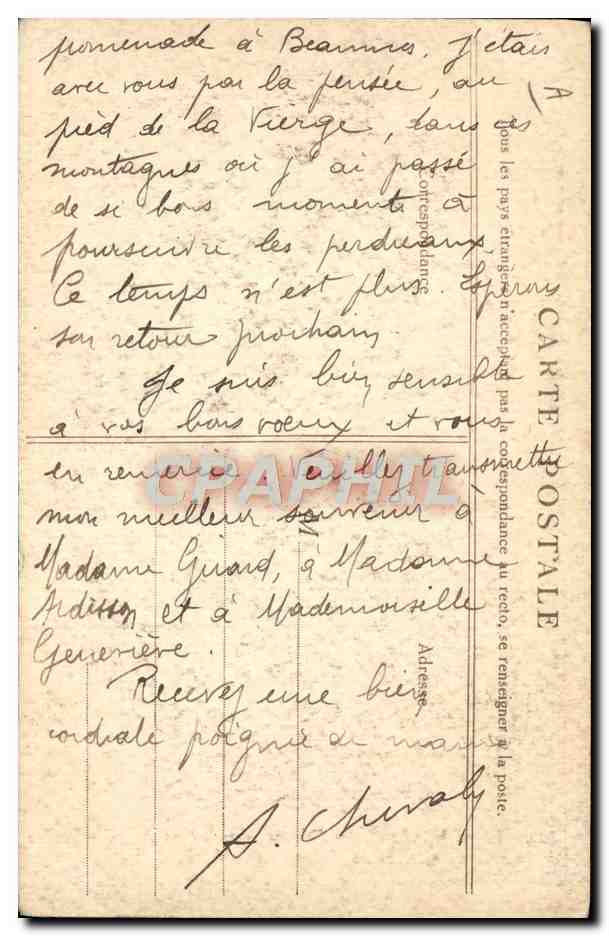 promenade à Beaumes. J'étais
avec vous par la pensée, au
pied de la Vierge, dans ces
montagnes où j'ai passé
de si bons moments à
poursuivre les perdreaux.
Ce temps n'est plus. Espérons
son retour prochain.
Je suis bien sensible
à vos bons voeux et vous
en remercie. Veuillez transmettre
mon meilleur souvenir à
Madame Girard, à Madame
Ardisson et à Mademoiselle
Geneviève.
Recevez une bien
cordiale poignée de main
A.
A
CARTE POSTALE
Tous les pays étrangers n'acceptant pas la correspondance au recto, se renseigner à la poste.
Correspondance
Adresse
M
CPAPHIL